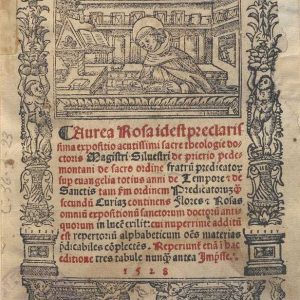 Aurea Rosa id est preclaris
sima expositio acutissimi sacre theologie do
ctoris Magistri Siluestri de prierio pede
montani de sacro ordine fratrū predicatorū
sup euangelia totius anni de Tempore ⁊ de
Sanctis tam fm ordinem Predicatorū ꝙ
secundū Curiaꝫ continens Flores ⁊ Rosas
omniū expositionū sanctorum doctorū anti
quorum in lucē exijt: cui nuperrime additū
est repertoriū alphabeticum oēs materias
p̄dicabiles cōplectēs. Reperiunt̄ etiā ī hac
editione tres tabule nunq̄ antea Imp̄sse.
1528